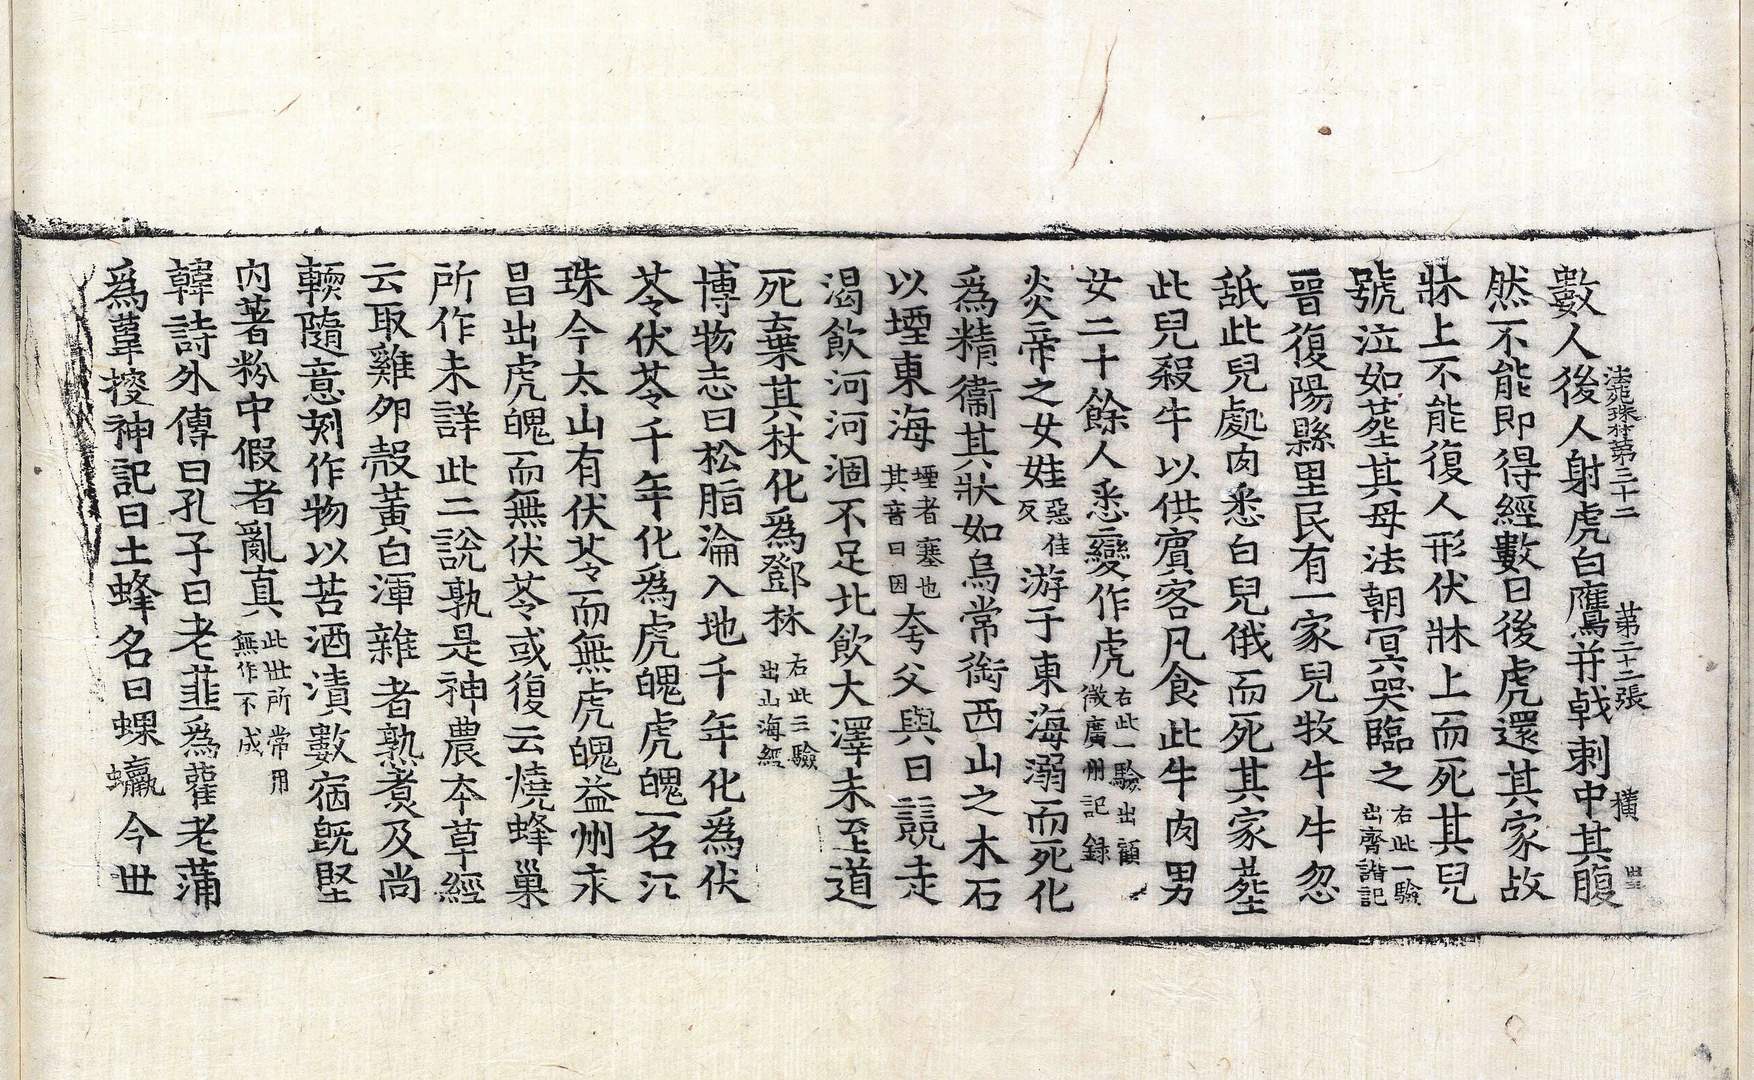 法苑珠林第三十二 第二十三張 橫
數人後人射虎白鷹并戟刺中其腹
然不能即得經數日後虎還其家故
牀上不能復人形伏牀上而死其兒
號泣如葬其母法朝冥哭臨之右此一驗出齊諧記
晉復陽縣里民有一家兒牧牛牛忽
舐此兒處肉悉白兒俄而死其家葬
此兒殺牛以供賓客凡食此牛肉男
女二十餘人悉變作虎右此一驗出顧微廣州記錄
炎帝之女娃惡佳反游于東海溺而死化
為精衞其狀如烏常銜西山之木石
以堙東海堙者塞也其音曰因夸父與日競走
渴飲河河涸不足北飲大澤未至道
死棄其杖化為鄧林右此三驗出山海經
博物志曰松脂淪入地千年化為伏
苓伏苓千年化為虎魄虎魄一名江
珠今太山有伏苓而無虎魄益州永
昌出虎魄而無伏苓或復云燒蜂巢
所作未詳此二說孰是神農本草經
云取雞卵殼黃白渾雜者熟煮及尚
輭隨意刻作物以苦酒漬數宿既堅
內著粉中假者亂真此世所常用無作不成
韓詩外傳曰孔子曰老韮為雚老蒲
為葦搜神記曰土蜂名曰蜾蠃今世